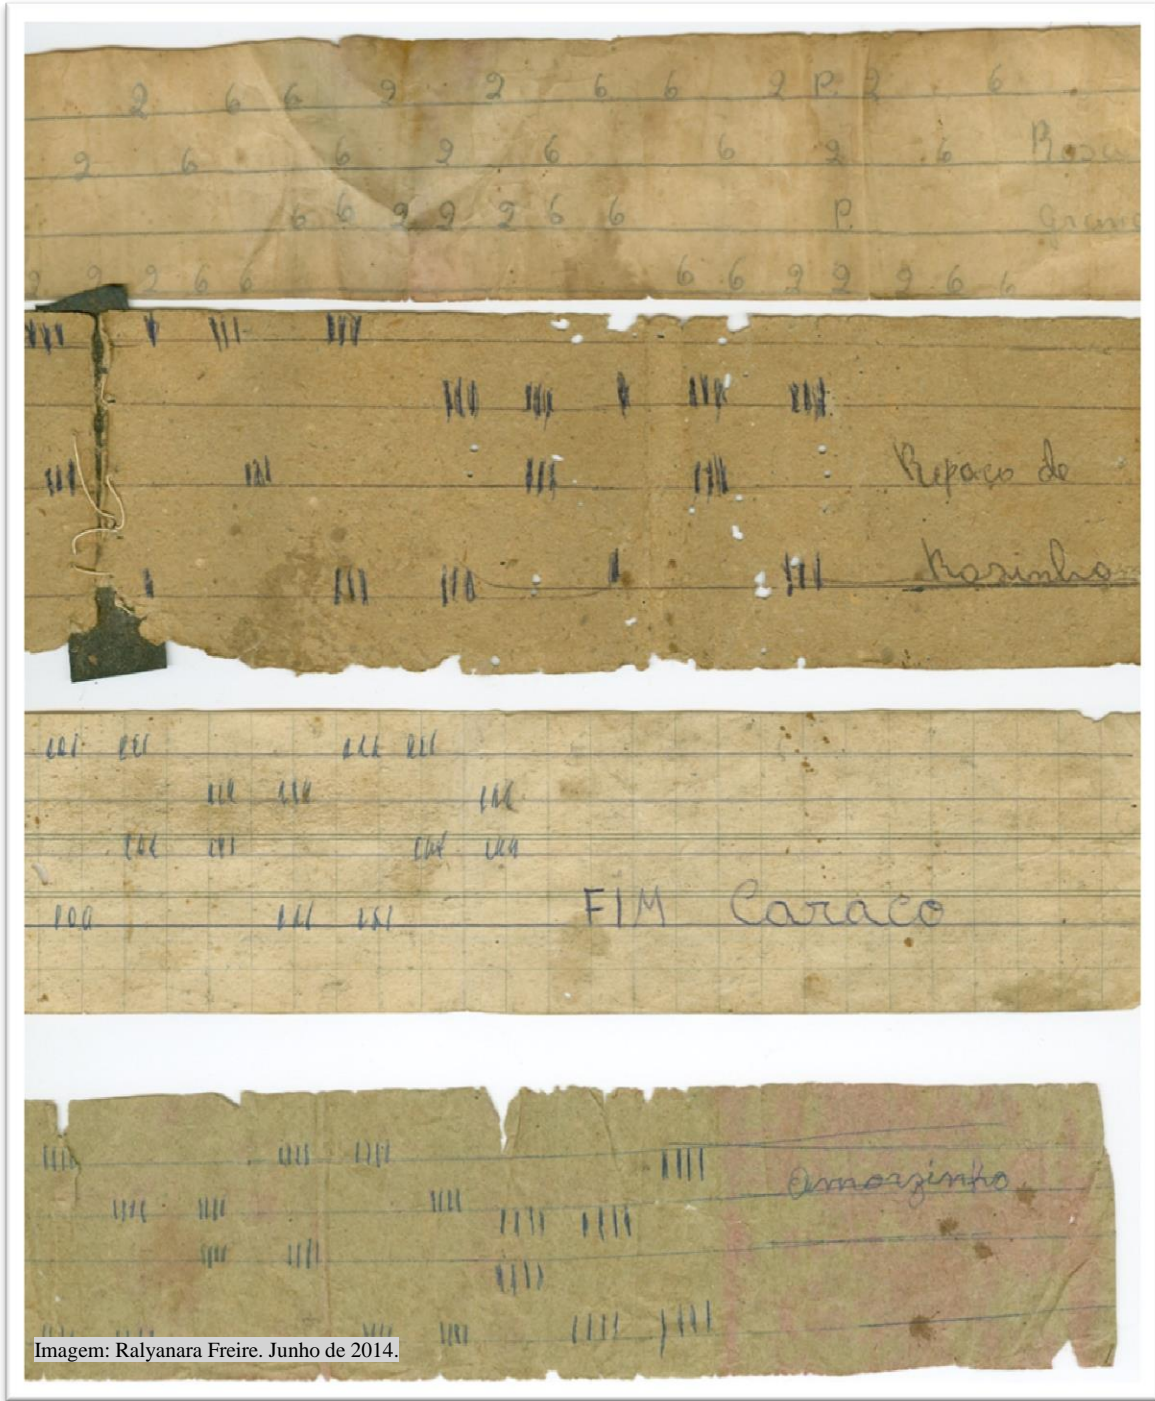 2 6 6 2 2 6 6 2 P. 2 6
2 6 6 2 6 6 2 6 Rosa
6 6 2 2 2 6 6 P.
2 2 2 6 6 6 6 2 2 2 6 6
Repaço de
Rosinha
FIM Caraco
Amorzinho
Imagem: Ralyanara Freire. Junho de 2014.